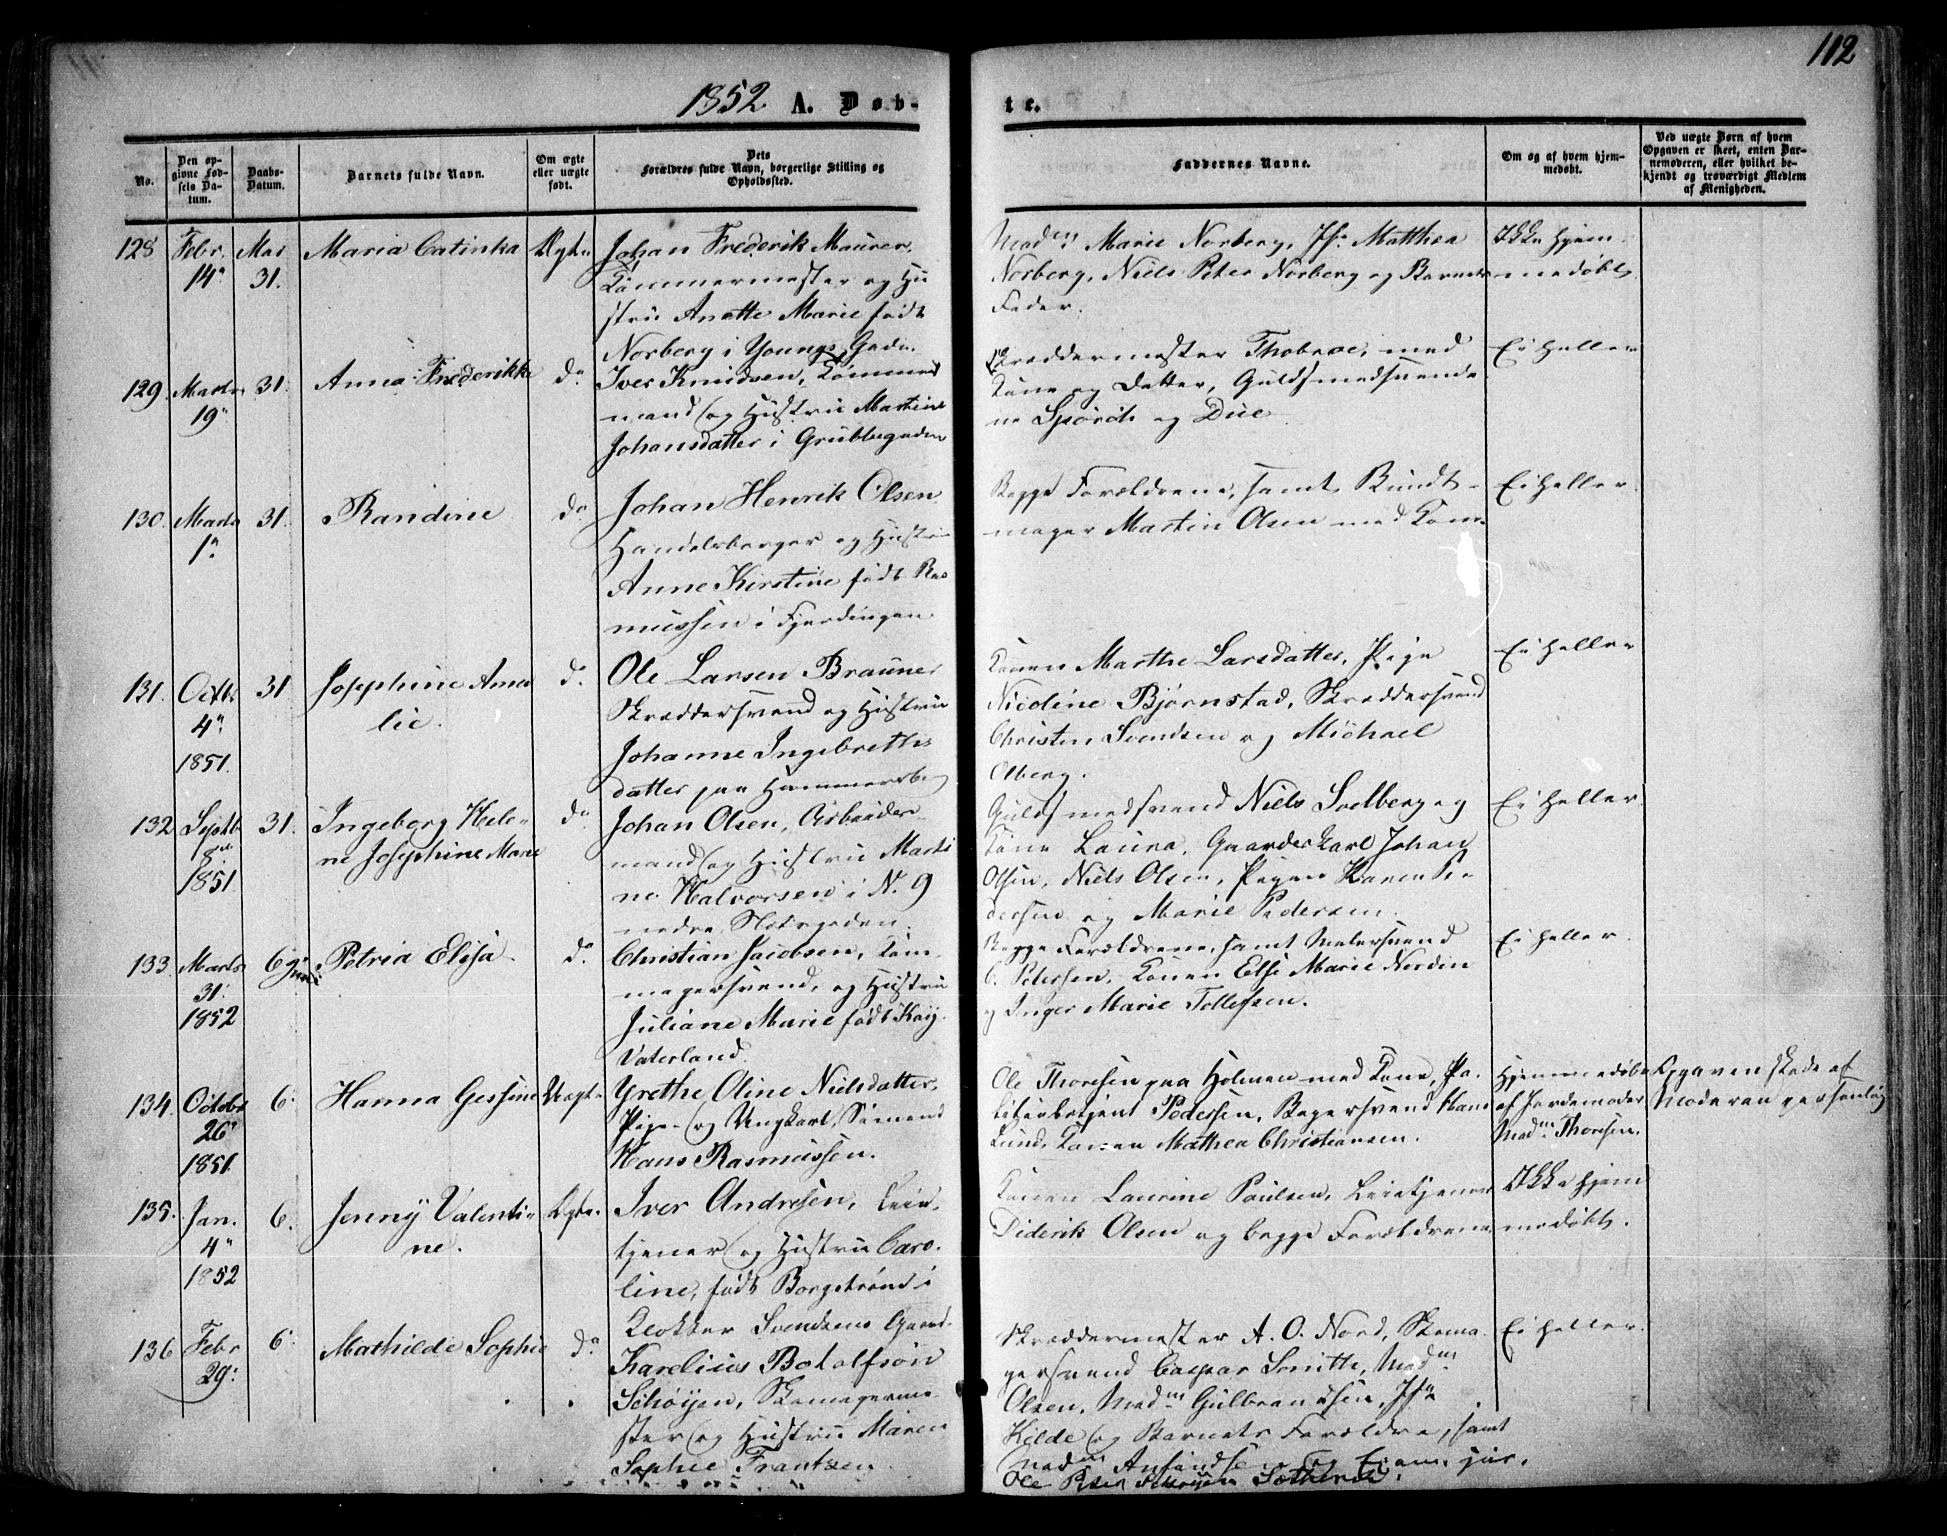 112
1852 A. Døb-
te.
No.
Den op-
givne Fød-
sels Da-
tum.
Daabs-
Datum.
Barnets fulde Navn.
Om ægte
eller uægte
født.
Dets
Forældres fulde Navn, borgerlige Stilling og
Opholdssted.
Faddernes Navne.
Om og af hvem hjem-
medøbt.
Ved uægte Børn af hvem
Opgaven er skeet, enten Bar-
nemoderen, eller hvilket be-
kjendt og troværdigt Medlem
af Menigheden.
128
Febr.
14
Mar
31.
Maria Catinka
Ægte
Johan Frederik Maurer,
Tømmermester og Hu
stru Anette Marie født
Norberg i Youngs Gade.
Madm Marie Norberg, Jfr Matthea
Norberg, Niels Peter Norberg og Barnets
Fader.
Ikke hjem
medøbt.
129
Marts
19
31.
Anna Frederikke
do
Iver Knudsen, Tømmer
mand og Hustru Martine
Johansdatter i Grubbegaden
Skræddermester Thobroe, med
Kone og Datter, Guldsmedsvende
ne Spörck og Due
Ei heller
130.
Marts
1
31.
Randine
do
Johan Henrik Olsen
Handelsborger og Hustru
Anne Kirstine født Ras
mussen i Fjerdingen.
Begge Forældrene, samt Bundt-
mager Martin Olsen med Kone.
Ei heller.
131.
Octbr
4
1851.
31
Josephine Ama
lie.
do
Ole Larsen Brauner
Skræddersvend og Hustru
Johanne Ingebreths
datter paa Hammersbg
Konen Marthe Larsdatter, Pige
Nicoline Bjørnstad, Skræddersvend
Christen Svendsen og Michael
Olberg.
Ei heller
132
Septb
8
1851
31.
Ingeborg Hele-
ne Josephine Marie
do
Johan Olsen, Arbeider
mand og Hustru Marti
ne Halvorsen i N. 9
nedre Slotsgaden.
Guldsmedsvend Niels Solberg og
Kone Laura, Gaardskarl Johan
Olsen, Niels Olsen, Pigen Karen Pe-
dersen og Marie Pedersen.
Ei heller
133
Marts
31
1852
6 Juni
Petria Elisa
do
Christian Jacobsen, Kam
magersvend, og Hustru
Juliane Marie født Kaij
Vaterland.
Begge Forældrene, samt Malersvend
C. Petersen, Konen Else Marie Nordin
og Inger Marie Tollefsen.
Ei heller.
134.
Octobr
26
1851.
6
Hanna Gessine
Uægte
Grethe Oline Nielsdatter,
Pige og Ungkarl, Sømand
Hans Rasmussen.
Ole Thoresen paa Holmen med Kone, Po-
litiebetjent Pedersen, Bagersvend Hans
Lund, Konen Mathea Christiansen.
Hjemmedøbt
af Jordemoder
Madm Thoresen.
Opgaven skede af
Moderen personlig
135.
Jan.
4
1852
6.
Jenny Valenti-
ne.
Ægte.
Iver Andresen, Leie-
tjener og Hustru Caro-
line, født Borgstrøm i
Klokker Svendsens Gaard.
Konen Laurine Paulsen, Leietjener
Diderik Olsen og begge Forældrene
Ikke hjem
medøbt.
136
Febr
29
6
Mathilde Sophie
do
Karelius Botolfsøn
Schøyen, Skomagerme-
ster og Hustru Maren
Sophie Frantzen
Skræddermester A. O. Nord, Skoma-
gersvend Caspar Smitte, Madm
Olsen, Madm Gulbrandsen, Jfr
Kilde og Barnets Forældre, samt
Madm Anfindsen og Exam. jur.
Ole Schøyen
Ei heller.